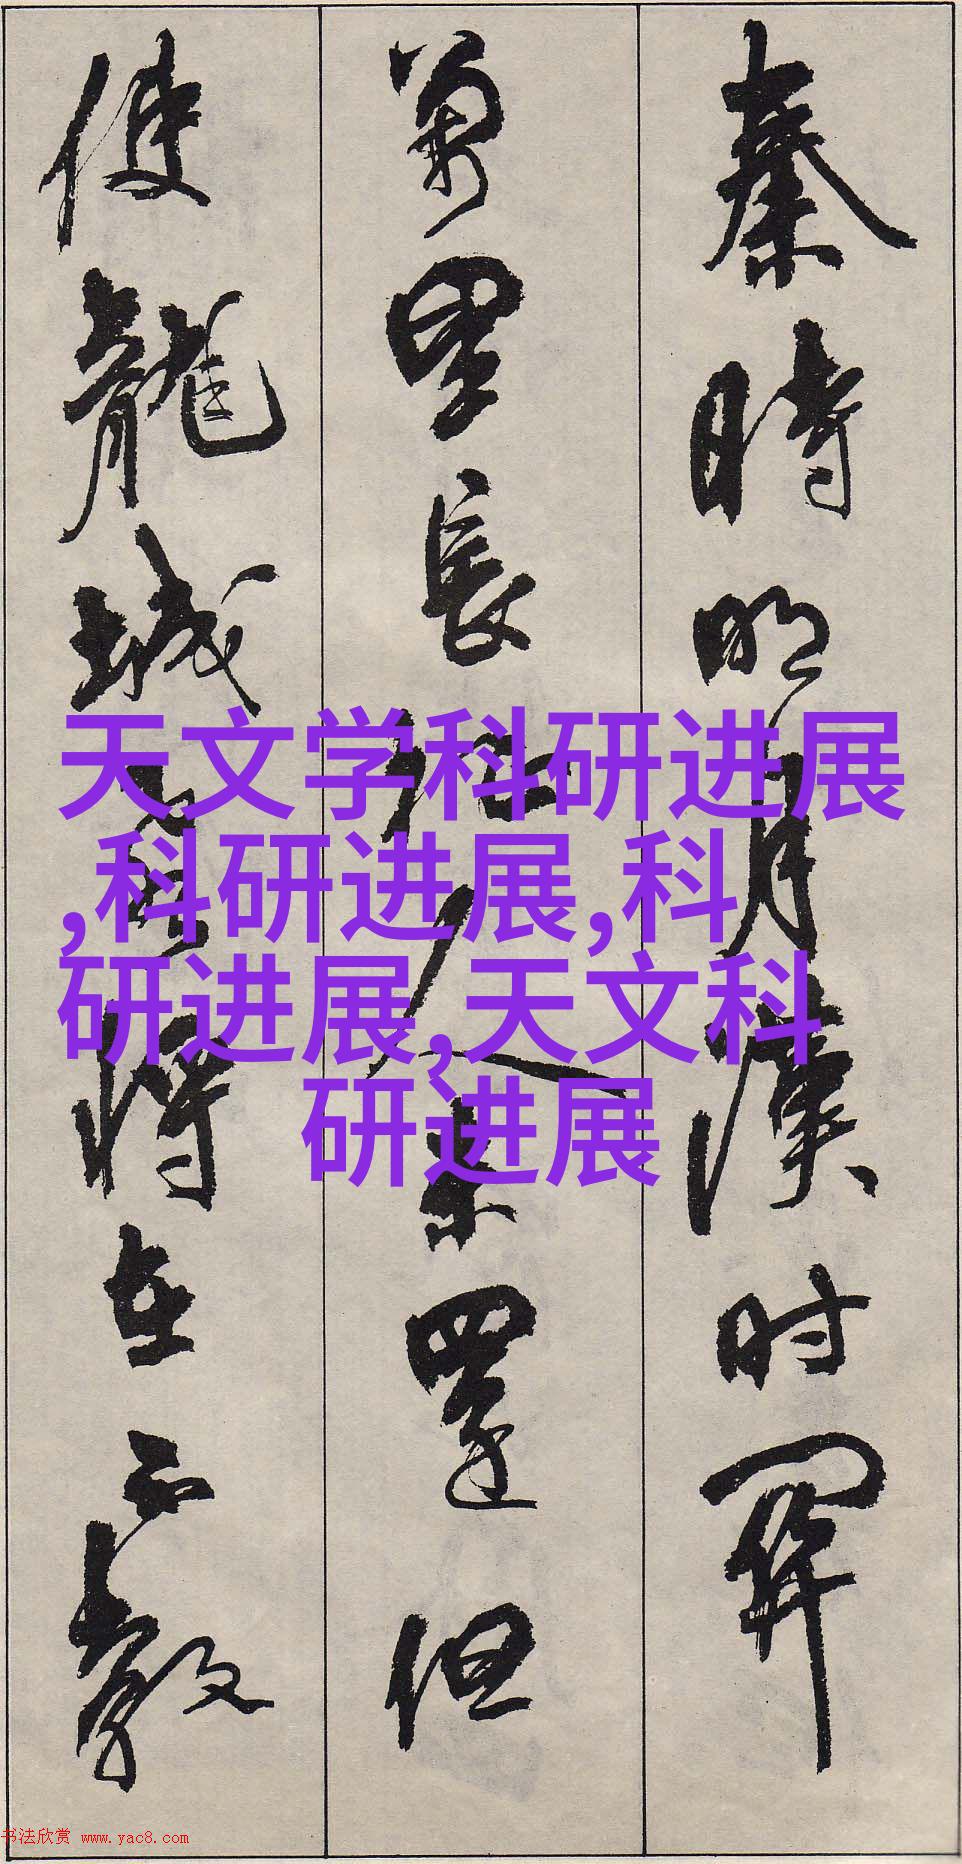 秦時明月漢时關
萬里長征人未還但
使龍城飛將在不教
天文学科研进展
,科研进展,科
研进展,天文科
研进展
书法欣赏 www.yac8.com